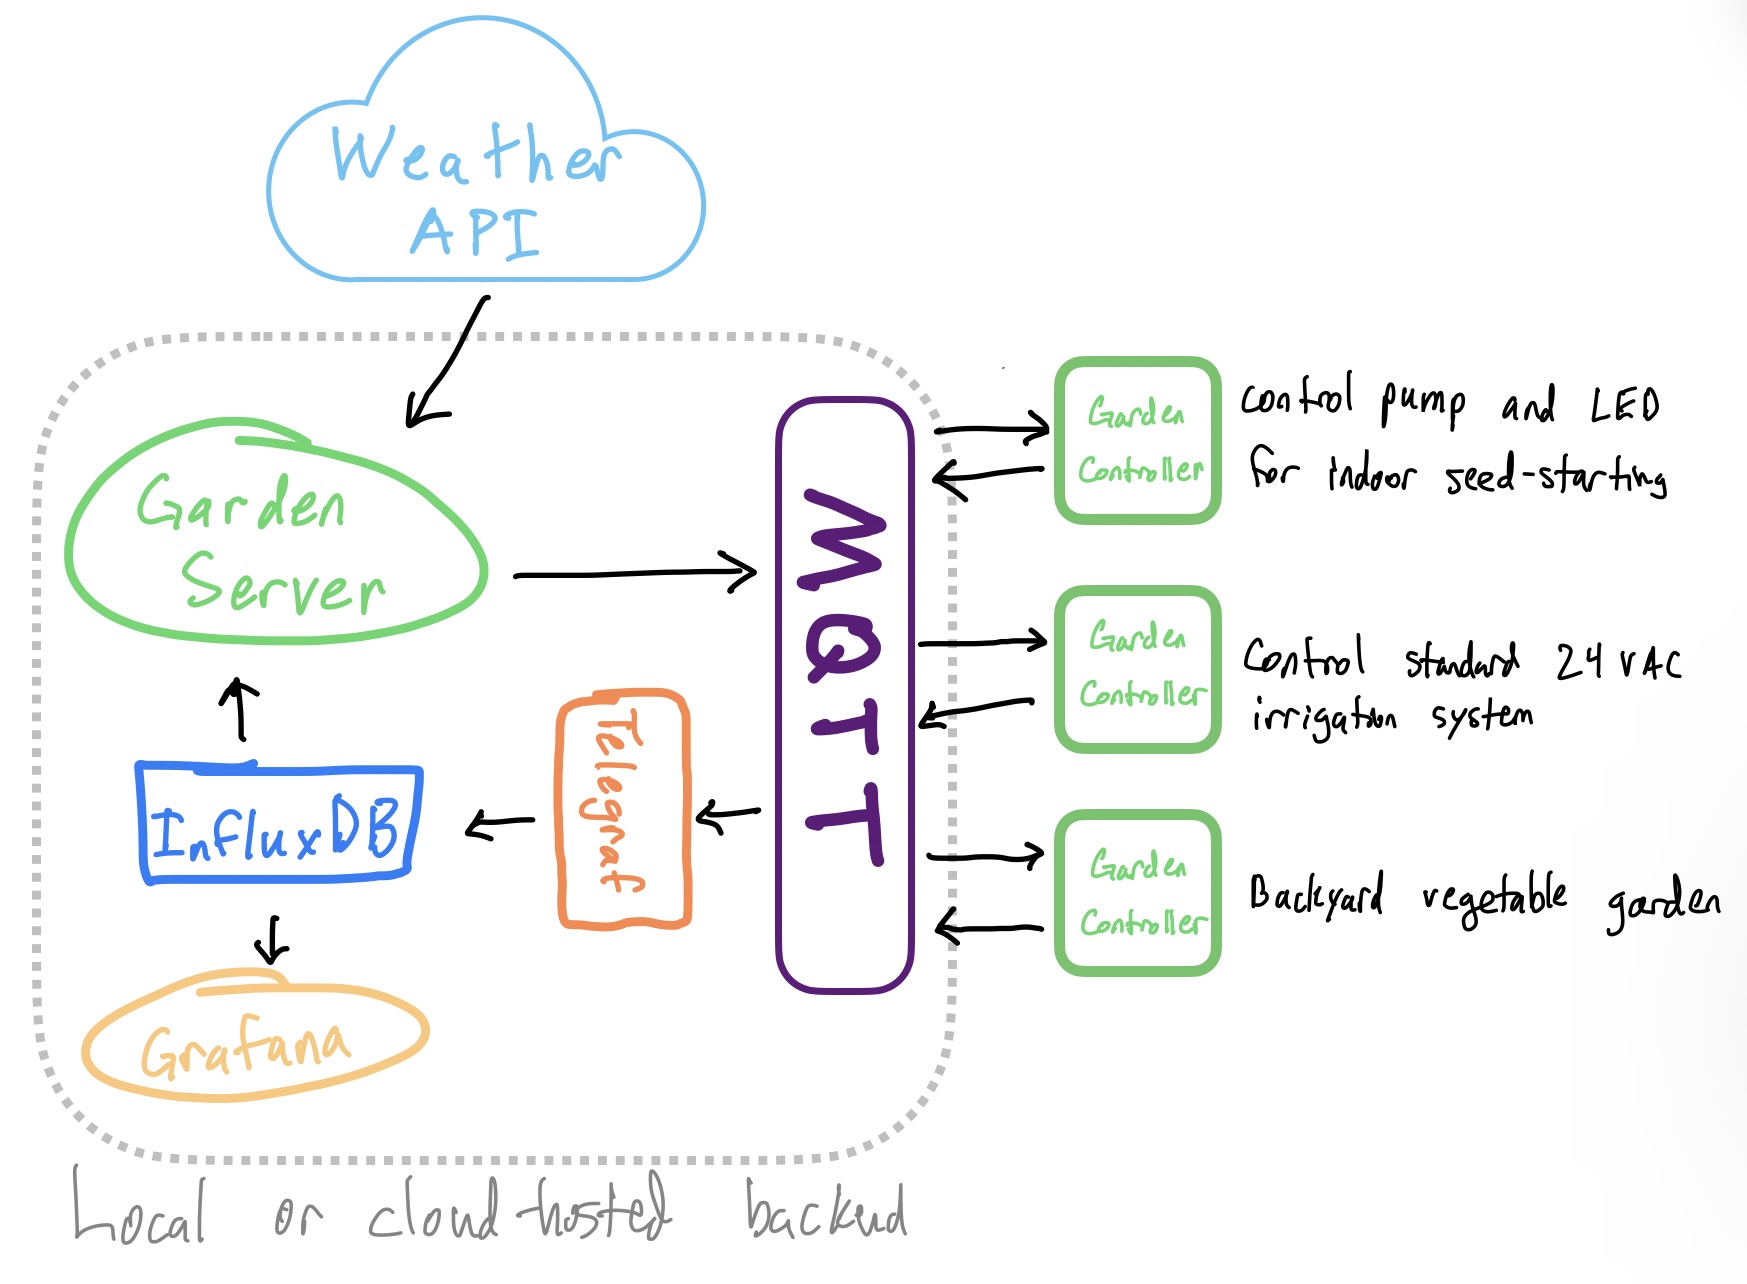 Weather
API
Garden
Server
MQTT
Telegraf
InfluxDB
Grafana
Garden
Controller
control pump and LED
for indoor seed-starting
Garden
Controller
Control standard 24 VAC
irrigation system
Garden
Controller
Backyard vegetable garden
Local or cloud-hosted backend